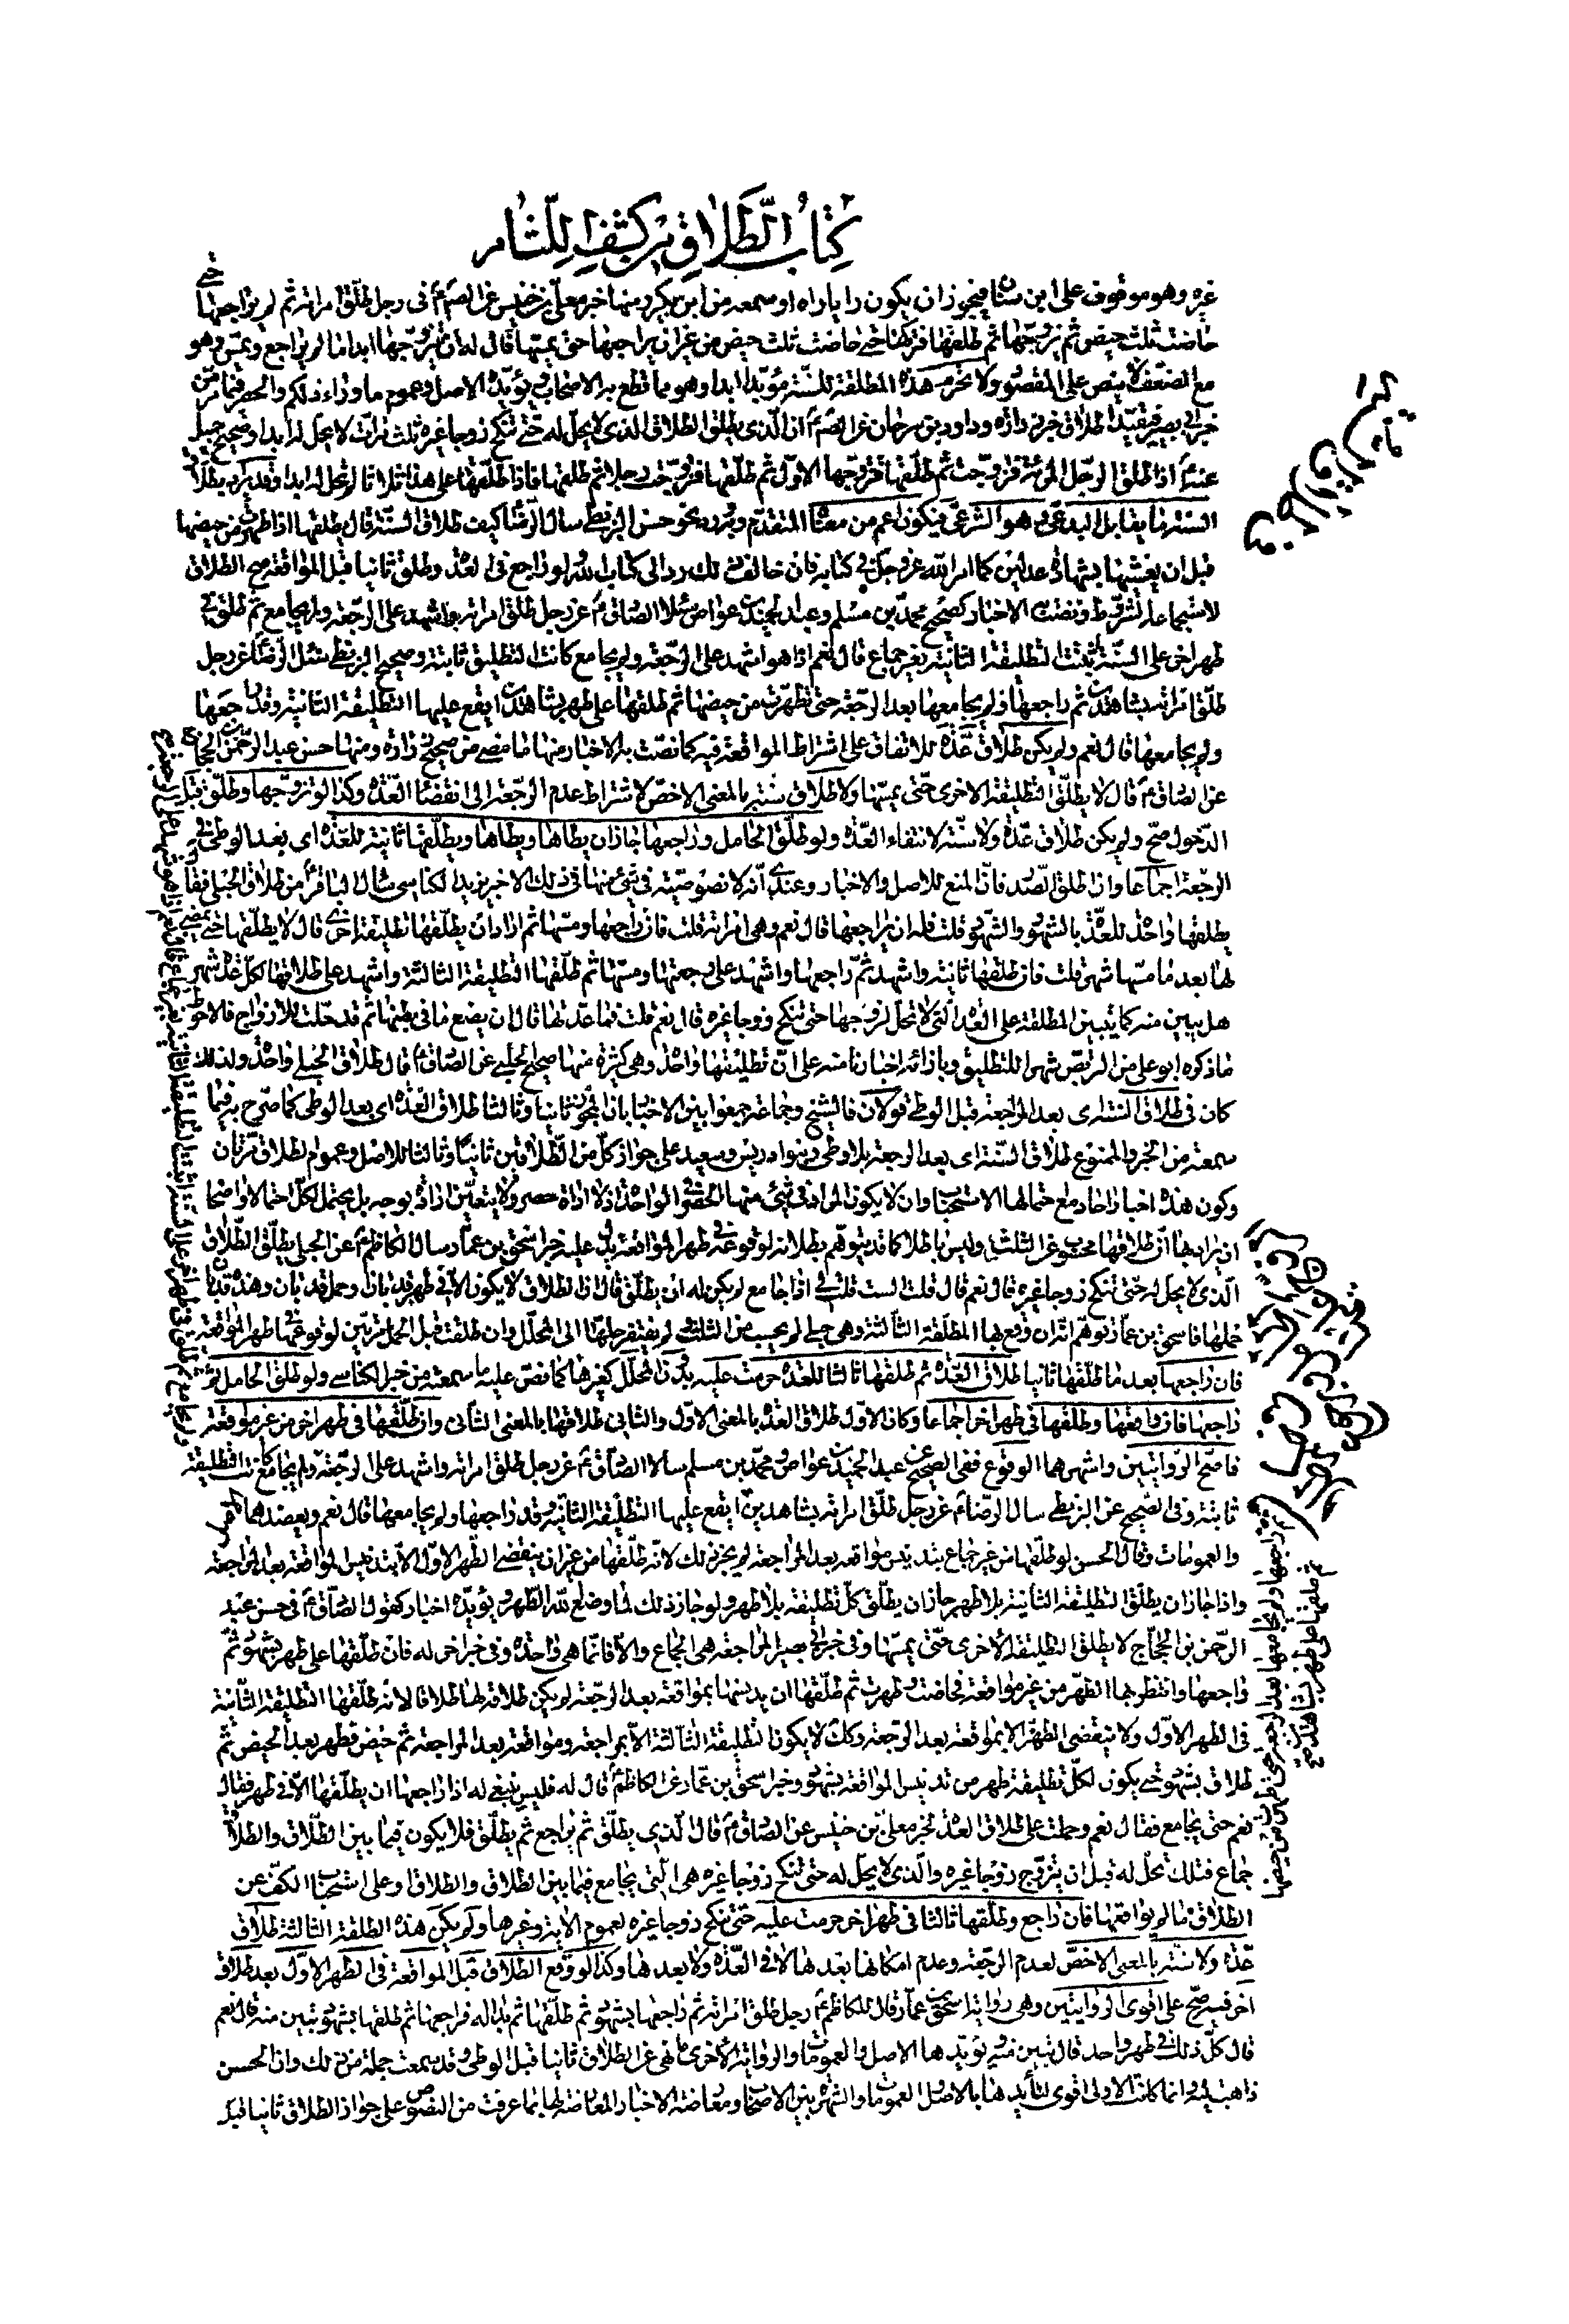 كتاب الطلاق من كشف اللثام
غيره وهو موقوف على ابن سنان فيجوز ان يكون رايا راه او سمعه من ابن بكير ومنها خبر معلى بن خنيس عن الصّم في رجل طلّق امراته ثم لم يراجعها حتى
حاضت ثلث حيض ثم تزوجها ثم طلقها فتركها حتى حاضت ثلث حيض من غير ان يراجعها حتى يمسّها قال له ان يتزوجها ابدا ما لم يراجع ويمسّ وهو
مع الضعف لا ينص على المقصود ولا تحرم هذه المطلقة للسّنة مؤبّدا ابدا وهو مما قطع به الاصحاب ويؤيّده الاصل وعموم ما وراء ذلكم والحصر فيما مرّ من
خبر ابي بصير فيقيد اطلاق خبر زرارة وداود بن سرحان عن الصّم ان الّذي يطلق الطلاق الذي لا يحل له حتى تنكح زوجا غيره ثلث مرات لا يحل له ابدا وصحيح جميل
عنه اذا طلق الرّجل المرئة فتزوجت ثم طلّقها فتزوجها الاوّل ثم طلّقها فتزوّجت رجلا ثم طلقها فاذا طلّقها على هذا ثلاثا لم تحل له ابدا وقد يراد بطلاق
السنة ما يقابل البدعيّ وهو الشرعيّ فيكون اعم من معناه المتقدّم وبه ورد نحو حسن البزنطي سال الرّضا كيف طلاق السنّة قال يطلقها اذا طهرت من حيضها
قبل ان يغشيها بشهادة عدلين كما امر الله عزوجل في كتابه فان خالف ذلك رد الى كتاب الله ولو راجع في العدّة وطلق ثانيا قبل المواقعة صح الطلاق
لاستجماعه الشروط ونصت به الاخبار كصحيح محمد بن مسلم وعبد الحميد بن عواض سئلا الصادق م عن رجل طلق امراته واشهد على الرّجعة ولم يجامع ثم طلق في
طهر اخر على السّنة اتثبت التطليقة الثانية بغير جماع قال نعم اذا هو اشهد على الرّجعة ولم يجامع كانت التطليق ثابتة وصحيح البزنطي سئل الرّضا عن رجل
طلّق امراته بشاهدين ثم راجعها ولم يجامعها بعد الرّجعة حتى تطهرت من حيضها ثم طلقها على طهر بشاهدين ايقع عليها التطليقة الثانية وقد راجعها
ولم يجامعها قال نعم ولم يكن طلاق عدّة للاتفاق على اشتراط المواقعة فيه كما نصّت به الاخبار منها ما مضى من صحيح زرارة ومنها حسن عبد الرّحمن بن الحجاج
عن الصادق م قال لا يطلّق التطليقة الاخرى حتى يمسّها ولا طلاق سنّة بالمعنى الاخصّ لاشتراط عدم الرّجعة الى انقضاء العدّة وكذا لو تزوّجها وطلّق قبل
الدّخول صحّ ولم يكن طلاق عدّة ولا سنّة لانتفاء العدّة ولو طلّق الحامل وراجعها جاز ان يطاها ويطاها ويطلّقها ثانية للعدّة اي بعد الوطي في
الرجعة اجماعا وان طلق الصّدوقان المنع للاصل والاخبار وعندي انّه لا نصوصيّة في شيء منها في ذلك الا خبر يزيد الكناسي سال الباقر م من طلاق الحبلى فقال
يطلقها واحدة للعدّة بالشهور والشهود قلت فله ان يراجعها قال نعم وهي امراته قلت فان راجعها ومسّها ثم اراد ان يطلّقها تطليقة اخرى قال لا يطلّقها حتى يمضي
لها بعد ما مسّها شهر قلت فان طلّقها ثانية واشهد ثمّ راجعها واشهد على رجعتها ومسّها ثم طلّقها التطليقة الثالثة واشهد على طلاقها لكل عدّة شهر
هل يبين منه كما يبين المطلقة على العدّة التي لا تحل لزوجها حتى تنكح زوجا غيره قال نعم قلت فما عدتها قال ان يضع ما في بطنها ثم قد حلت للازواج فالاحوط
ما ذكره ابو علي من التربّص شهرا للتطليق وبازائه اخبار ناصة على انّ تطليقها واحدة وهي كثيرة منها صحيح الحلبي عن الصادق م قال طلاق الحبلى واحدة ولذلك
كان في طلاق السنة اي بعد المراجعة قبل الوطي قولان فالشيخ وجماعة جمعوا بين الاخبار بان المجوّز ثانيا وثالثا طلاق العدّة اي بعد الوطي كما صرّح به فيما
سمعته من الخبر والممنوع طلاق السّنة اي بعد الرجعة بلا وطي وبنوا ادريس وسعيد على جواز كلّ من الطّلاقين ثانيا وثالثا للاصل وعموم الطلاق مرّتان
وكون هذه اخبار احاد مع احتمالها الاستحباب وان لا يكون المراد في شيء منها الحصر في الواحدة اذ لا اداة حصر ولا يتعيّن ارادته بوجه بل يحتمل لكل احتمالا واضحا
ان يراد بها انّ طلاقها محسوب من الثلث وليس باطلا كما قد يتوهّم بطلانه لوقوعه في طهر المواقعة يدل عليه خبر اسحق بن عمار سال الكاظم م عن الحبلى يطلّق الطّلاق
الّذي لا يحل له حتى تنكح زوجا غيره قال نعم قال قلت الست قلت لي اذا جامع لم يكن له ان يطلق قال ان الطلاق لا يكون الا في طهر قد بان وحمل قد بان وهذه قد بان
حملها فاسحق بن عمار توهّم انه ان وقع بها المطلقة الثالثة وهي حبلى لم يحسب من الثلث ولم يفتقر حلها الى المحلّل وان طلقت قبل الحمل مرتين لوقوعها في طهر المواقعة
فان راجعها بعد ما طلّقها ثانيا طلاق العدّة ثم طلقها ثالثا للعدّة حرمت عليه بدون المحلّل كغيرها كما نصّ عليه ما سمعته من خبر الكناسي ولو طلق الحامل ثم
راجعها فان واقعها وطلقها في طهر اخر اجماعا وكان الاوّل طلاق العدّة بالمعنى الاوّل والثاني طلاقها بالمعنى الثاني وان طلّقها في طهر اخر من غير مواقعة
فاصّح الروايتين واشهرهما الوقوع ففي الصّحيح عن عبد الحميد بن عواض ومحمّد بن مسلم سالا الصادق م عن رجل طلق امراته واشهد على الرّجعة ولم يجامع كانت التطليقة
ثابتة وفي الصحيح عن البزنطي سال الرّضا م عن رجل طلّق امراته بشاهدين ايقع عليها التطليقة الثانية وقد راجعها ولم يجامعها قال نعم ويعضدهما
والعمومات وقال الحسن لو طلّقها من غير جماع بتدنيس مواقعه بعد المراجعة لم يجز ذلك لانّه طلّقها من غير ان ينقضي الطّهر الاوّل الا بتدنيس المواقعة بعد المراجعة
واذا جاز ان يطلّق التطليقة الثانية بلا طهر جاز ان يطلّق كلّ تطليقة بلا طهر ولو جاز ذلك لما وضع الله الطّهر ويؤيّده اخبار كقول الصّادق م في حسن عبد
الرّحمن بن الحجّاج لا يطلق التطليقة الأخرى حتّى يمسّها وفي خبر ابي بصير المراجعة هي الجماع والا فانّما هي واحدة وفي خبر اخر له فان طلّقها على طهر بشهود ثمّ
راجعها وانتظر بها الطّهر من غير مواقعة فحاضت وطهرت ثم طلّقها ان يدنسها بمواقعة بعد الرّجعة لم يكن طلاقه لها طلاقا لانه طلّقها التطليقة الثّانية
في الطهر الاوّل ولا ينقضي الطّهر الا بمواقعة بعد الرّجعة وكذلك لا يكون التطليقة الثالثة الا بمراجعة ومواقعة بعد المراجعة ثم حيض وطهر بعد الحيض ثم
طلاق بشهود حتى يكون لكل تطليقة طهر من تدنيس المواقعة بشهود وخبر اسحق بن عمّار عن الكاظم م قال له فليس ينبغي له اذا راجعها ان يطلّقها الّا في طهر فقال
نعم حتى يجامع فقال نعم وحملت على طلاق العدّة لخبر معلى بن خنيس عن الصادق م قال الّذي يطلّق ثم يراجع ثم يطلّق فلا يكون فيما بين الطّلاق والطلاق
جماع فتلك تحل له قبل ان يتزوّج زوجا غيره والّذي لا يحلّ له حتى تنكح زوجا غيره هي الّتي يجامع فيما بين الطلاق والطلاق وعلى استحباب الكفّ عن
الطلاق ما لم يواقعها فان راجع وطلّقها ثالثا في طهر اخر حرمت عليه حتّى تنكح زوجا غيره لعموم الاية وغيرها ولم يكن هذه الطلقة الثالثة طلاق
عدّة ولا سنّة بالمعنى الاخصّ لعدم الرّجعة وعدم امكانها بعدها لا في العدّة ولا بعدها وكذا لو وقع الطّلاق قبل المواقعة في الطهر الاوّل بعد طلاق
اخر فيه صحّ على اقوى الروايتين وهي رواية اسحق بن عمّار قال للكاظم م رجل طلق امراته ثم راجعها بشهود ثم طلّقها ثم بدا له فراجعها ثم طلقها بشهود تبين منه قال نعم
قال كلّ ذلك في طهر واحد قال تبين منه يؤيّدها الاصل والعمومات والرّواية الأخرى ما نهى عن الطلاق ثانيا قبل الوطي وقد سمعت جملة من ذلك وانّ الحسن
ذاهب اليه وانما كانت الاولى اقوى لتأيدها بالاصل والعمومات والشهرة بين الاصحاب ومعارضة الاخبار المعارضة لها بما عرفت من النصوص على جواز الطلاق ثانيا قبل